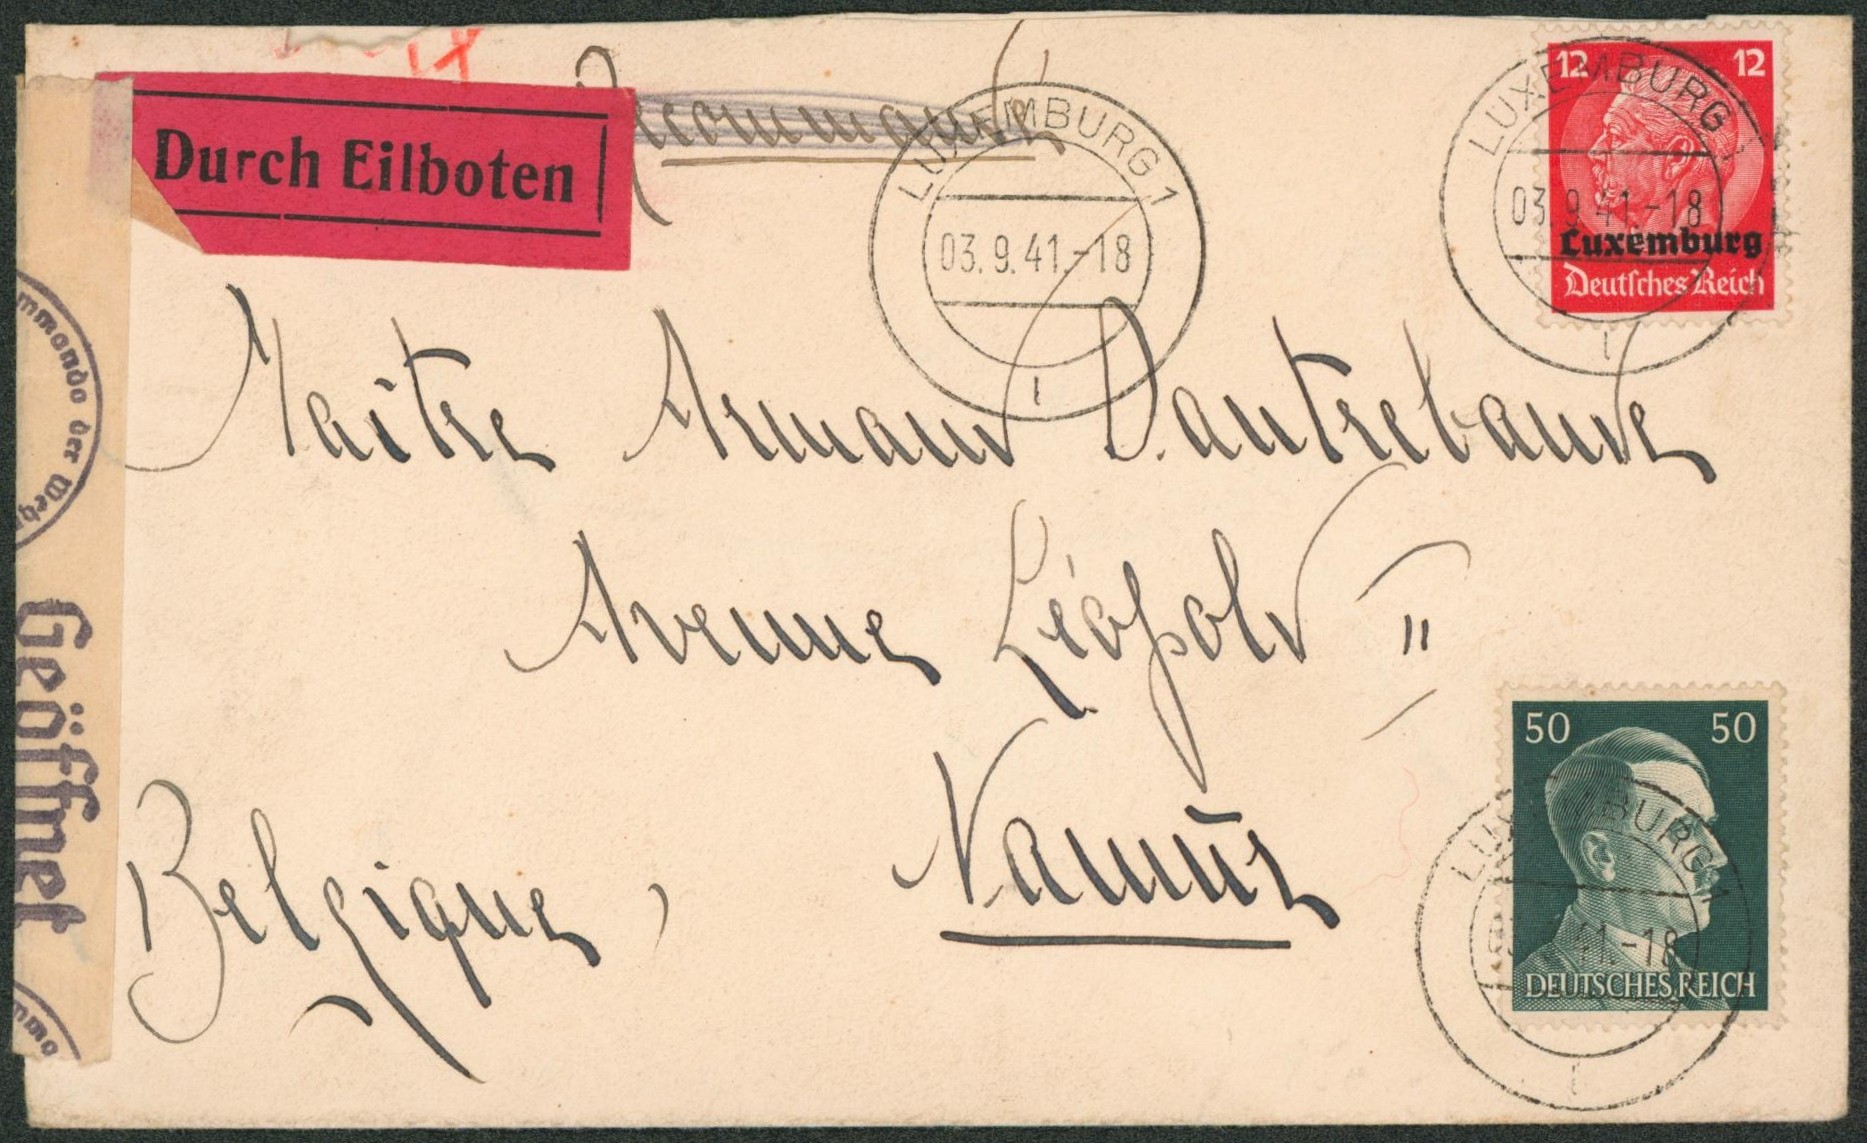 Durch Eilboten
Recommandé
LUXEMBURG 1
03.9.41.-18
1
12 12
Luxemburg
Deutsches Reich
LUXEMBURG 1
03.9.41.-18
1
Maître Armand Dantrebande
Avenue Léopold II
Namur
Belgique
50 50
DEUTSCHES REICH
LUXEMBURG 1
41.-18
1
mmando der Weh
Geöffnet
mmo